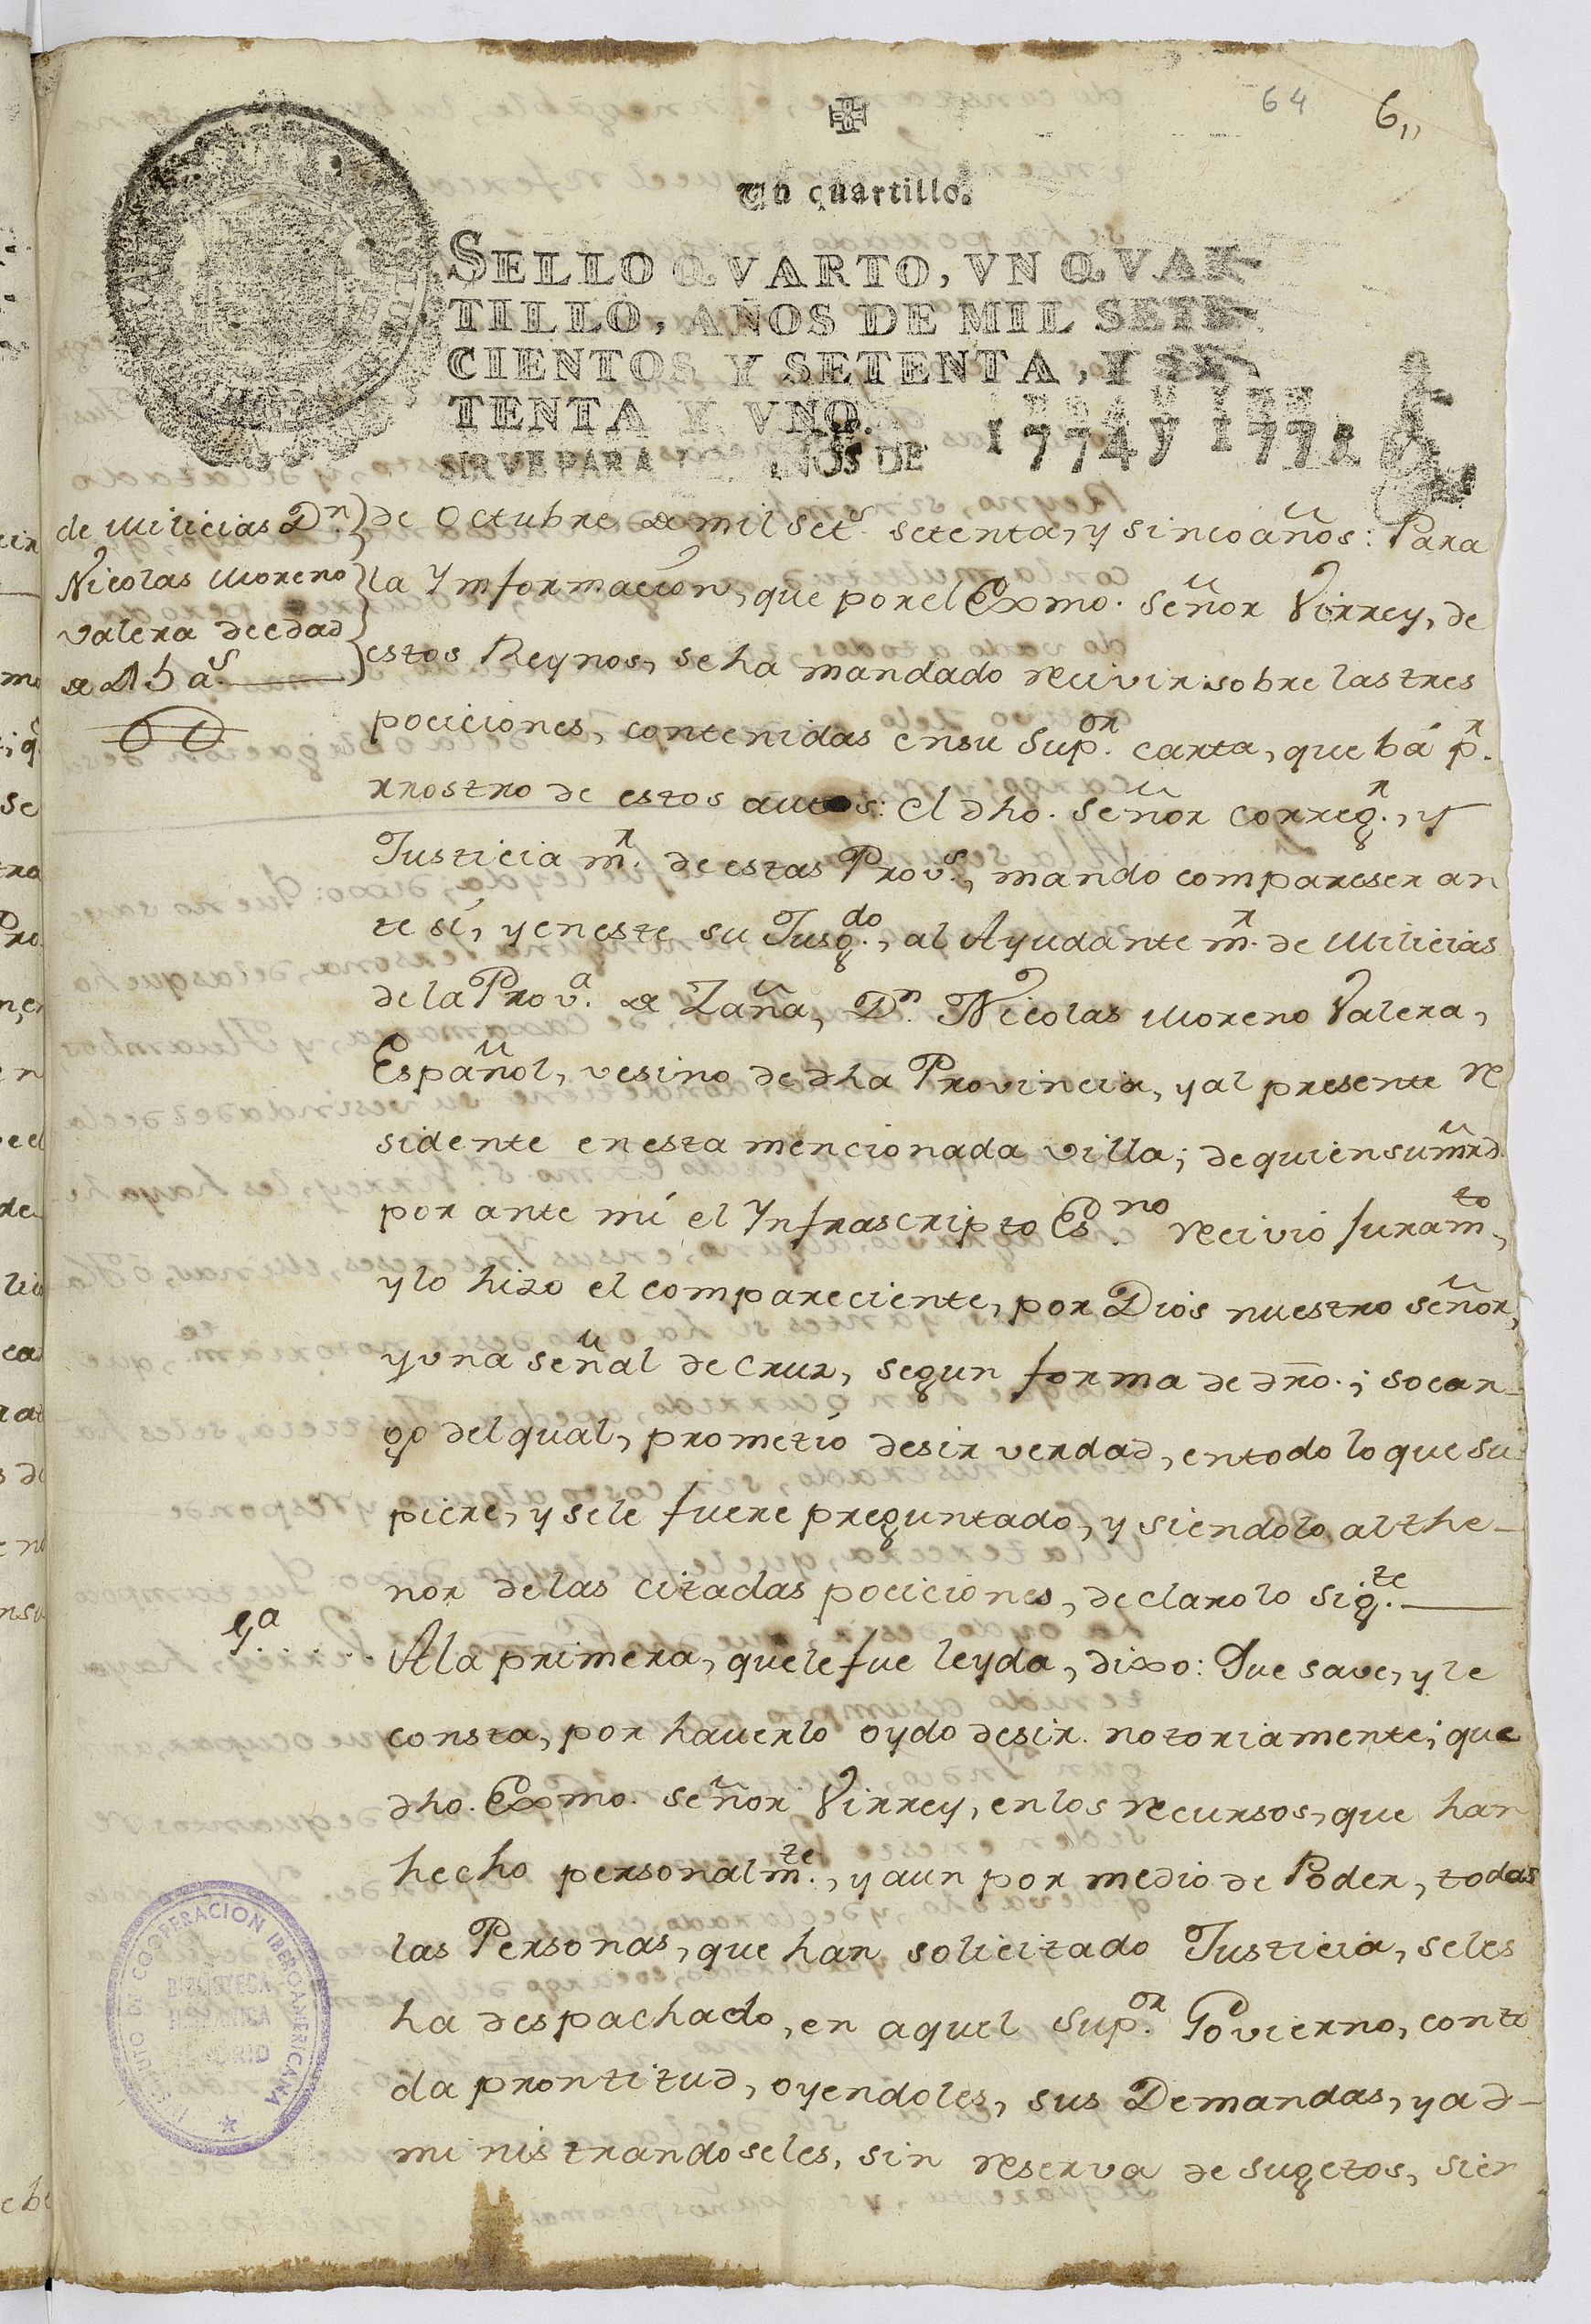 64
6,,
Un cuartillo.
SELLO QVARTO, VN QVAR-
TILLO, AÑOS DE MIL SETE-
CIENTOS Y SETENTA, Y SE-
TENTA Y VNO.
SIRVE PARA AÑOS DE 1774 y 1775
de Milicias Dn.
Nicolas Moreno
Valera de edad
de 45 as.
de Octubre de mil sets. setenta, y sinco años: Para
la Ymformacion, que por el Exmo. Señor Virrey, de
estos Reynos, se ha mandado recivir sobre las tres
pociciones, contenidas en su Supor. carta, que bá pr.
rrostro de estos autos: el dho. Señor Corregr., y
Justicia mr. de estas Provs., mando compareser an
te sí, y en este su Jusgdo., al Ayudante mr. de Milicias
de la Prova. de Zaña, Dn. Nicolas Moreno Valera,
Español, vesino de dha Provincia, y al presente re
sidente en esta mencionada villa; de quien su mrd.
por ante mí el Ynfrascripto Esno. recivió juramto,
y lo hizo el compareciente, por Dios nuestro señor,
y vna señal de Cruz, segun forma de dro.; so car-
go del qual, prometió desir verdad, en todo lo que su
piere, y se le fuere preguntado, y siendolo al the-
nor de las citadas pociciones, declaro lo sigte.
1a....
A la primera, que le fue leyda, dixo: Que save, y le
consta, por haverlo oydo desir notoriamente; que
dho. Exmo. Señor Virrey, en los recursos, que han
hecho personalmte., y aun por medio de Poder, todas
las Personas, que han solicitado Justicia, se les
ha despachado, en aquel Supor. Govierno, con to
da prontitud, oyendoles, sus Demandas, y ad-
ministrandoseles, sin reserva de sugetos, sien
INSTITUTO DE COOPERACION IBEROAMERICANA
BIBLIOTECA
HISPANICA
MADRID